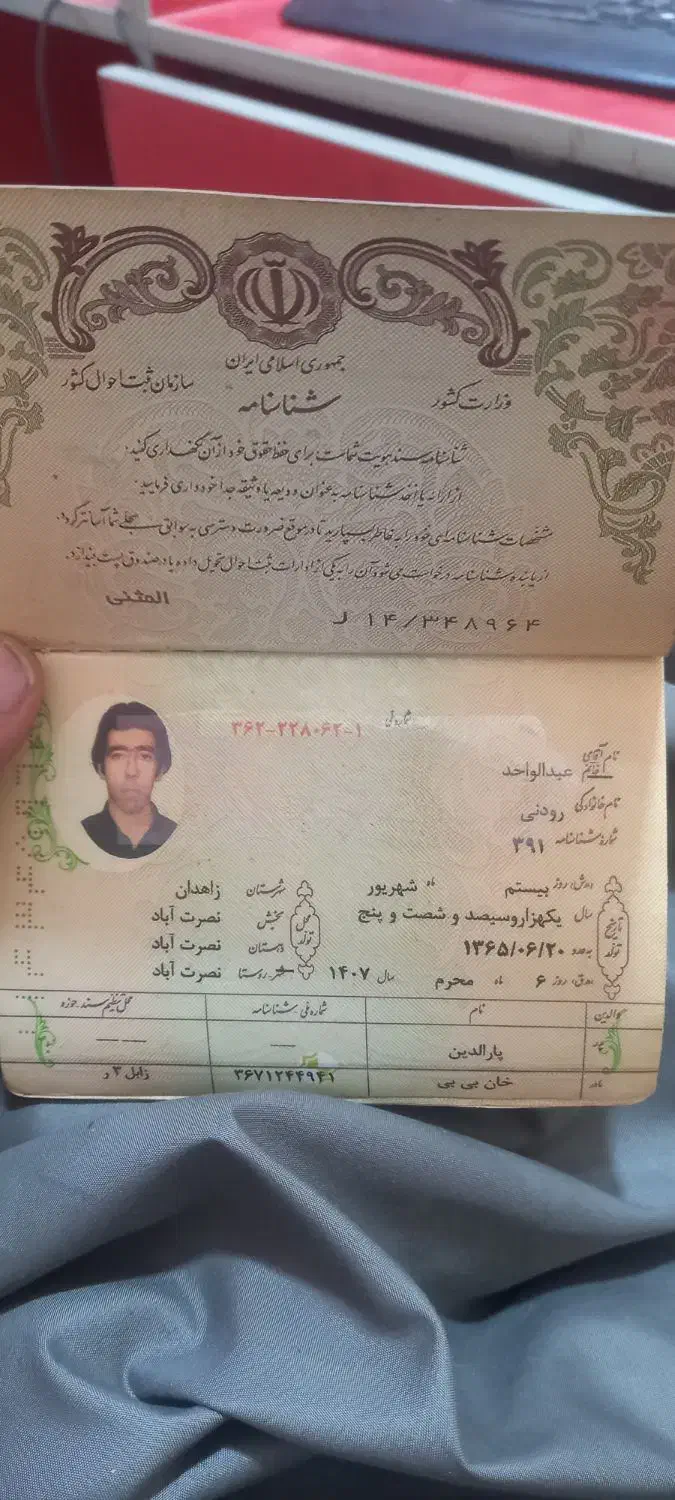 جمهوری اسلامی ایران
وزارت کشور
سازمان ثبت احوال کشور
شناسنامه
شناسنامه سند هویت شماست برای حفظ حقوق خود از آن نگهداری کنید.
از ارائه یا اخذ شناسنامه به عنوان ودیعه یا وثیقه جداً خودداری فرمایید.
مشخصات شناسنامه‌ای خود را به خاطر بسپارید تا در موقع ضرورت دسترسی به سوابق سجلی شما آسانتر گردد.
از یابنده شناسنامه درخواست می‌شود آن را به یکی از ادارات ثبت احوال تحویل داده یا در صندوق پست بیندازد.
المثنی
۱۴/۳۴۸۹۶۴ د
شماره ملی ۳۶۲-۲۲۸۰۶۲-۱
نام آقای/خانم عبدالواحد
نام خانوادگی رودنی
شماره شناسنامه ۳۹۱
تاریخ تولد
ه‍.ش: روز بیستم ماه شهریور
سال یکهزاروسیصد و شصت و پنج
به عدد ۱۳۶۵/۰۶/۲۰
ه‍.ق: روز ۶ ماه محرم سال ۱۴۰۷
محل تولد
شهرستان زاهدان
بخش نصرت آباد
دهستان نصرت آباد
شهر-روستا نصرت آباد
والدین نام شماره ملی-شناسنامه محل تنظیم سند-حوزه
پدر پارالدین — — —
مادر خان بی بی ۳۶۷۱۲۴۴۹۴۱ زابل ۳ ر